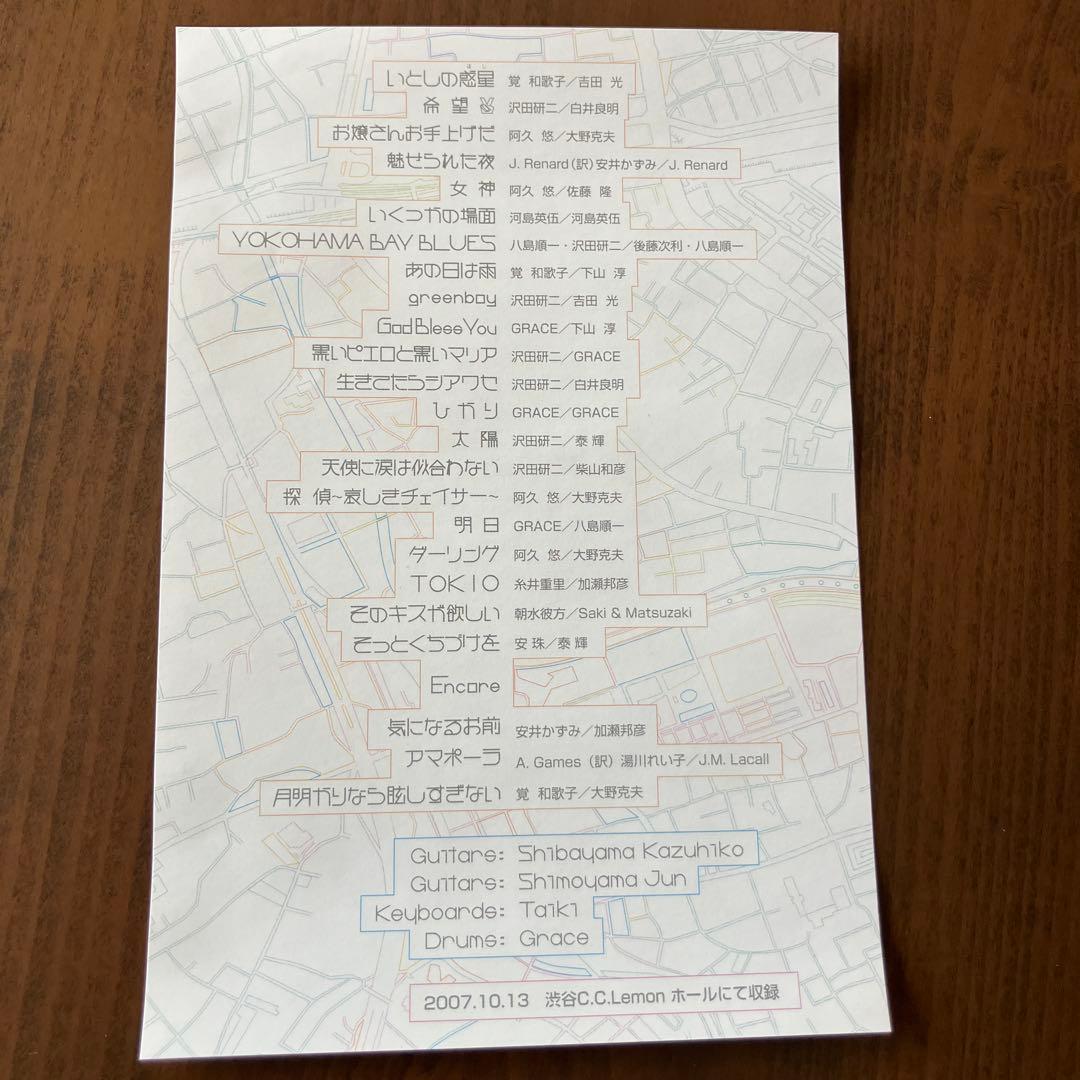 いとしの惑星 覚 和歌子／吉田 光
ほし
希望✌ 沢田研二／白井良明
お嬢さんお手上げだ 阿久 悠／大野克夫
魅せられた夜 J. Renard（訳）安井かずみ／J. Renard
女神 阿久 悠／佐藤 隆
いくつかの場面 河島英伍／河島英伍
YOKOHAMA BAY BLUES 八島順一・沢田研二／後藤次利・八島順一
あの日は雨 覚 和歌子／下山 淳
greenboy 沢田研二／吉田 光
God Bless You GRACE／下山 淳
黒いピエロと黒いマリア 沢田研二／GRACE
生きてたらシアワセ 沢田研二／白井良明
ひかり GRACE／GRACE
太陽 沢田研二／泰輝
天使に涙は似合わない 沢田研二／柴山和彦
探偵~哀しきチェイサー~ 阿久 悠／大野克夫
明日 GRACE／八島順一
ダーリング 阿久 悠／大野克夫
TOKIO 糸井重里／加瀬邦彦
そのキスが欲しい 朝水彼方／Saki & Matsuzaki
そっとくちづけを 安 珠／泰輝
Encore
気になるお前 安井かずみ／加瀬邦彦
アマポーラ A. Games（訳）湯川れい子／J.M. Lacall
月明かりなら眩しすぎない 覚 和歌子／大野克夫
Guitars: Shibayama Kazuhiko
Guitars: Shimoyama Jun
Keyboards: Taiki
Drums: Grace
2007.10.13 渋谷C.C.Lemon ホールにて収録